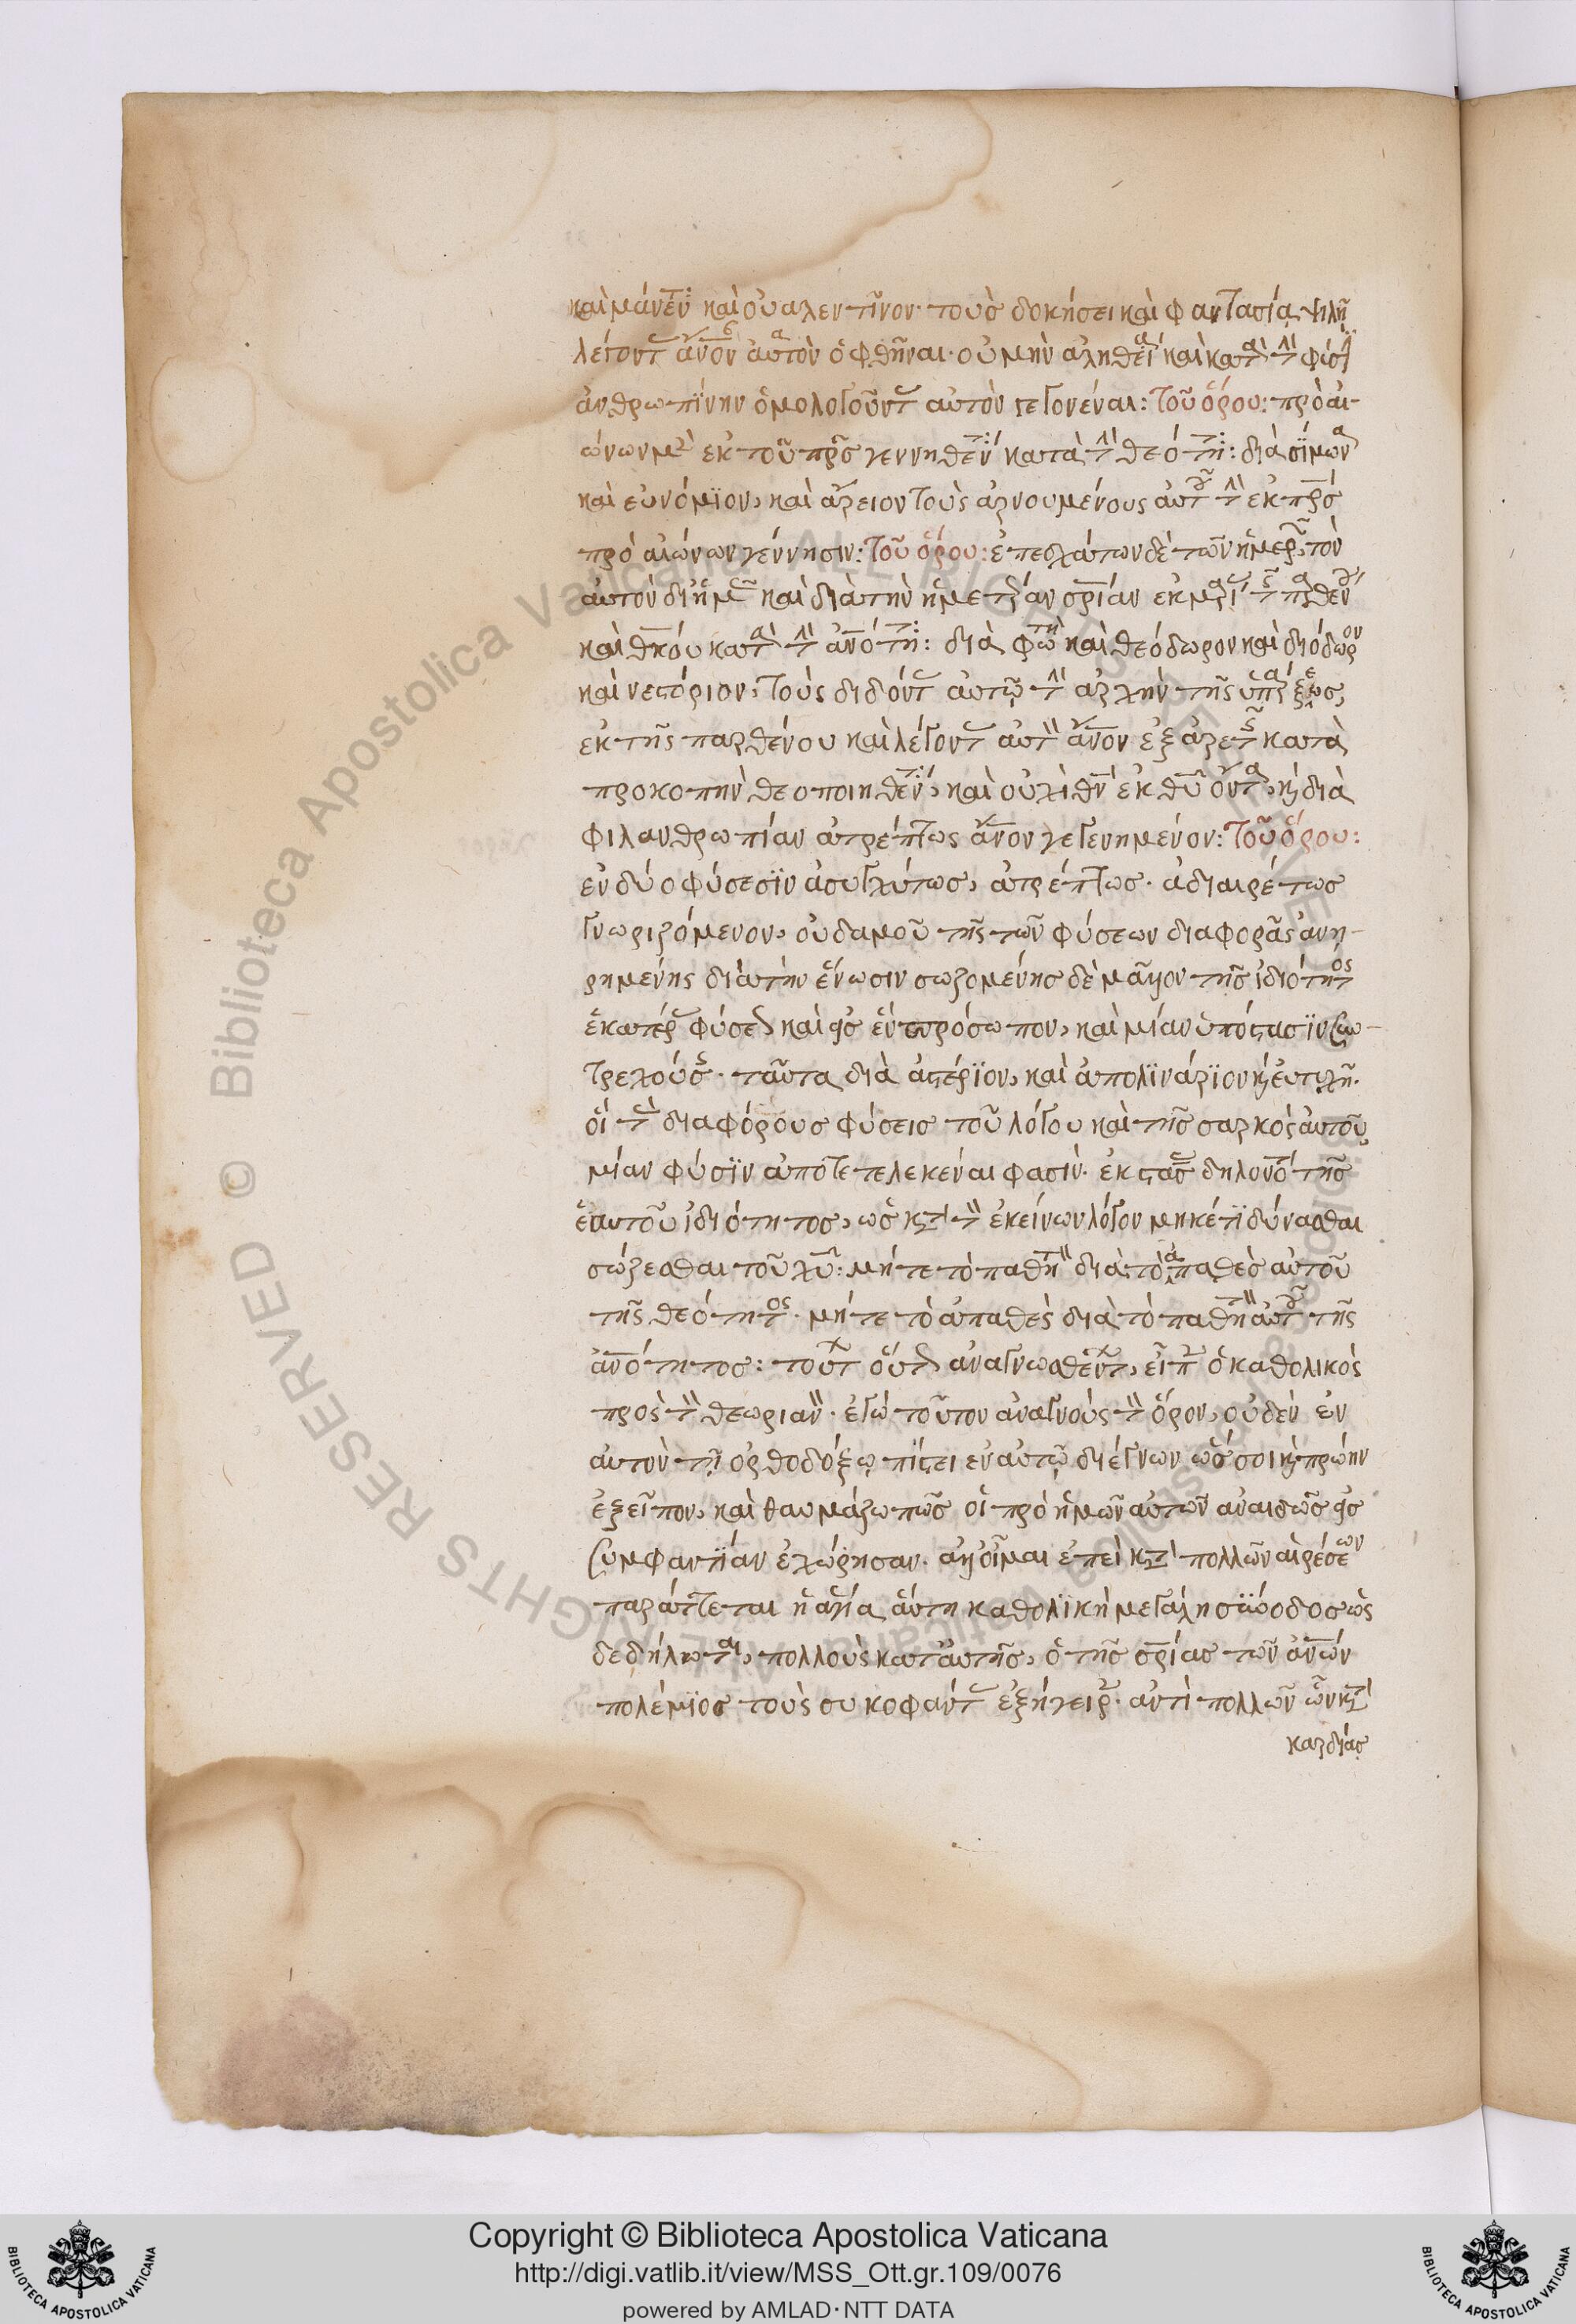 καὶ μάνεντ καὶ οὐαλεντῖνον· τοὺς δοκήσει καὶ φαντασίᾳ ψιλῇ
λέγοντ ἄνον αὐτὸν ὀφθῆναι· οὐ μὴν ἀληθεί καὶ κατὰ τὴν φύσ
ἀνθρωπίνην ὁμολογοῦντ αὐτὸν γεγονέναι: Τοῦ ὅρου: πρὸ αἰ-
ώνων μὲν ἐκ τοῦ πρς γεννηθέν κατὰ τὴν θεότητ: διὰ σίμωνα
καὶ εὐνόμιον, καὶ ἄρειον τοὺς ἀρνουμένους αὐτοῦ τὴν ἐκ πρς
πρὸ αἰώνων γέννησιν: Τοῦ ὅρου: ἐπεσχάτων δὲ τῶν ἡμερῶν τὸν
αὐτὸν δι ἡμᾶς καὶ διὰ τὴν ἡμετέραν σρίαν ἐκ μαρίας τῆς παρθέν
καὶ θκου κατὰ τὴν ἀνότητ: διὰ φωτ καὶ θεόδωρον καὶ διόδωρον
καὶ νεστόριον, τοὺς διδόντ αὐτῷ τὴν ἀρχὴν τῆς ὑπάρξεως,
ἐκ τῆς παρθένου καὶ λέγοντ αὐτὸν ἄνον ἐξ ἀρετῆς κατὰ
προκοπὴν θεοποιηθέν, καὶ οὐχὶ θν ἐκ θυ ὄντα, κ διὰ
φιλανθρωπίαν ἀτρέπτως ἄνον γεγενημένον: Τοῦ ὅρου:
ἐν δύο φύσεσϊν ἀσυγχύτως, ἀτρέπτως· ἀδιαιρέτως
γνωριζόμενον, οὐδαμοῦ τῆς τῶν φύσεων διαφορᾶς ἀνῃ-
ρημένης διὰ τὴν ἕνωσιν σωζομένης δὲ μᾶλλον τῆς ἰδιότητος
ἑκατέρας φύσεως καὶ εἰς ἓν πρόσωπον, καὶ μίαν ὑπόστασϊν συ-
τρεχούσης· ταῦτα διὰ ἀστέρϊον, καὶ ἀπολϊνάρϊον κ εὐτυχῆ.
οἱ τὰς διαφόρους φύσεις τοῦ λόγου καὶ τῆς σαρκὸς αὐτοῦ
μίαν φύσϊν ἀποτετελεκέναι φασὶν· ἐκστάς δηλονότ τῆς
ἑαυτοῦ ἰδιότητος, ὡς κατὰ τὸν ἐκείνων λόγον μηκέτϊ δύνασθαι
σώζεσθαι τοῦ χυ: μήτε τὸ παθητὸν διὰ τὸ ἀπαθὲς αὐτοῦ
τῆς θεότητος· μήτε τὸ ἀπαθὲς διὰ τὸ παθητὸν αὐτοῦ τῆς
ἀνότητος: τούτ οὕτως ἀναγνωσθέντ, εἶπ ὁ καθολικὸς
πρὸς τὸν θεωριανόν· ἐγὼ τοῦτον ἀναγνοὺς τὸν ὅρον, οὐδὲν ἐν
αυτον τῇ ὀρθοδόξῳ πίστει ἐν αὐτῷ διέγνων ὡς σοι κ πρώην
ἐξεῖπον, καὶ θαυμάζω πῶς οἱ πρὸ ἡμῶν αὐτῶν ἀναιδῶς εἰς
συμφαντίαν ἐχώρησαν· ἀλλ οἶμαι ἐπεὶ κατὰ πολλῶν αἱρέσεων
παρατάττεται ἡ ἁγία αὕτη καθολϊκὴ μεγάλη σύνοδος ὡς
δεδήλωται, πολλοὺς κατ αὐτῆς, ὁ τῆς σρίας τῶν ἀνων
πολέμϊος τοὺς συκοφάντ ἐξήγειρε· ἀντὶ πολλῶν ὧν κατὰ
καρδίας
Copyright © Biblioteca Apostolica Vaticana
http://digi.vatlib.it/view/MSS_Ott.gr.109/0076
powered by AMLAD·NTT DATA